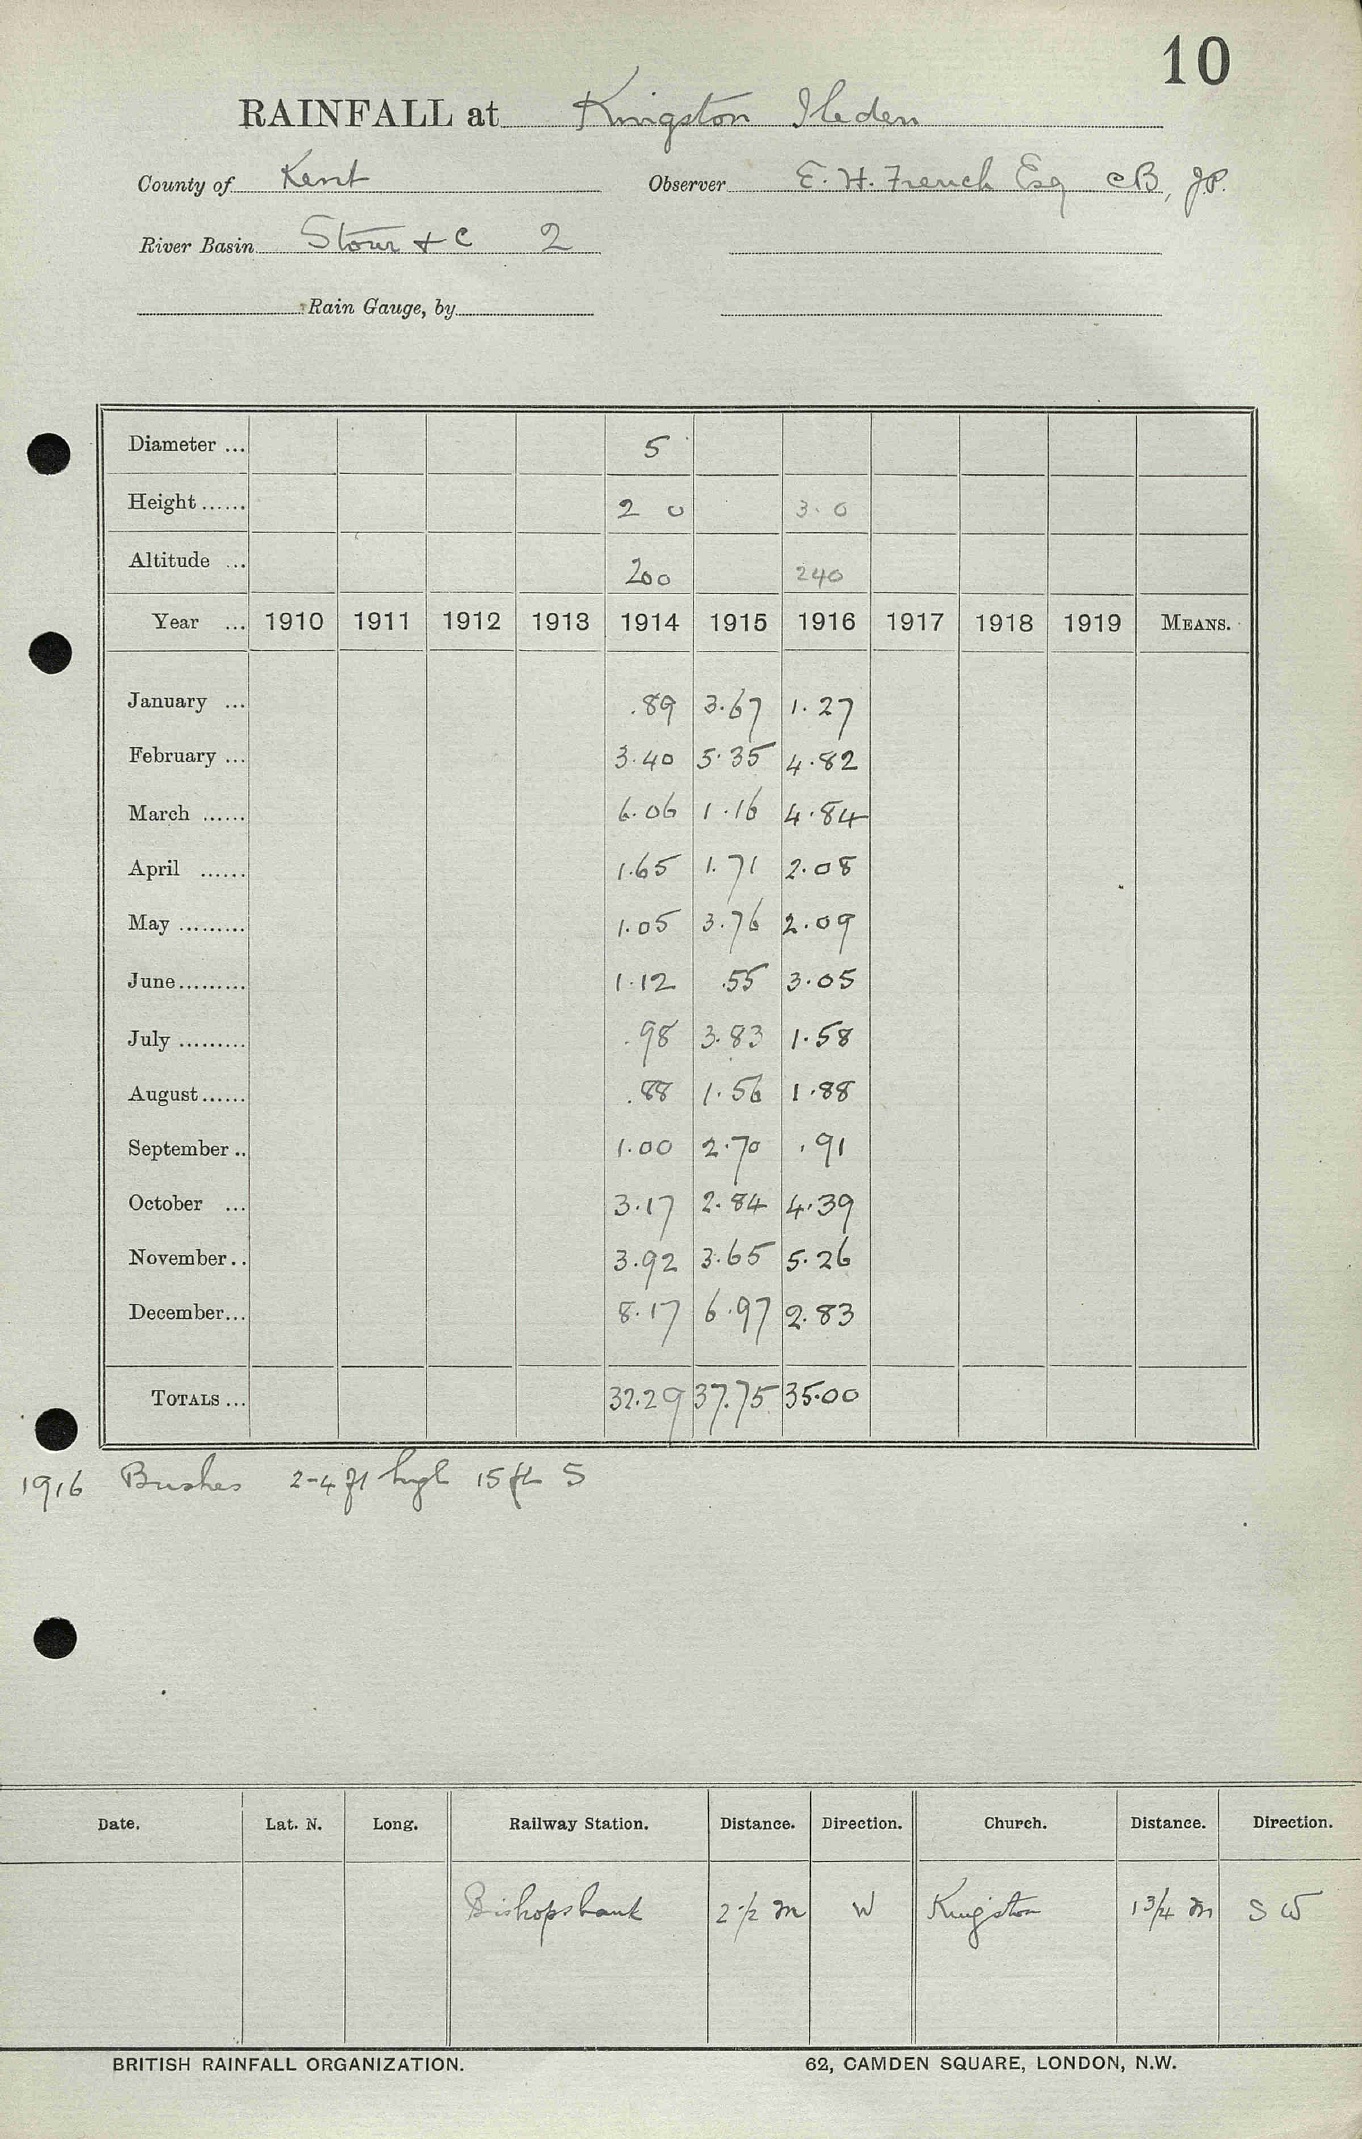 10
RAINFALL at Kingston Ileden
County of Kent Observer E. H. French Esq CB, J.P.
River Basin Stour & C 2
Rain Gauge, by
Diameter ... 5
Height ...... 2 0 3. 0
Altitude ... 200 240
Year ... 1910 1911 1912 1913 1914 1915 1916 1917 1918 1919 MEANS.
January ... .89 3.67 1.27
February ... 3.40 5.35 4.82
March ...... 6.06 1.16 4.84
April ...... 1.65 1.71 2.08
May ......... 1.05 3.76 2.09
June ......... 1.12 .55 3.05
July ......... .98 3.83 1.58
August ...... .88 1.56 1.88
September .. 1.00 2.70 .91
October ... 3.17 2.84 4.39
November .. 3.92 3.65 5.26
December ... 8.17 6.97 2.83
TOTALS ... 32.29 37.75 35.00
1916 Bushes 2-4 ft high 15 ft S
Date. Lat. N. Long. Railway Station. Distance. Direction. Church. Distance. Direction.
Bishopsbank 2 1/2 m W Kingston 1 3/4 m S W
BRITISH RAINFALL ORGANIZATION. 62, CAMDEN SQUARE, LONDON, N.W.